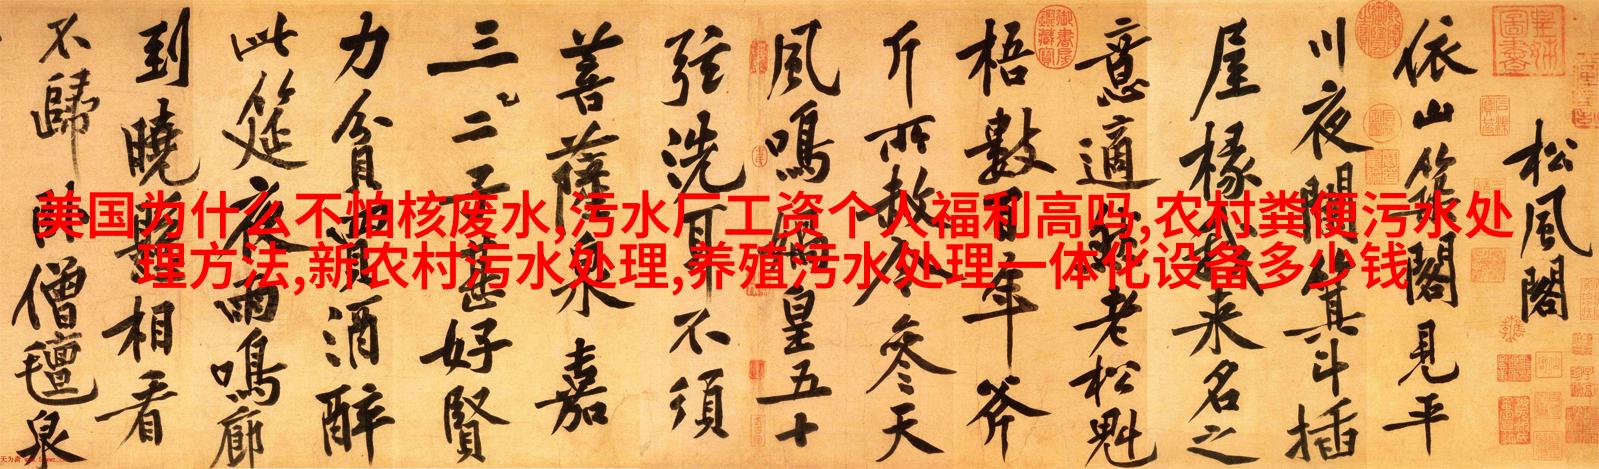 美国为什么不怕核废水,污水厂工资个人福利高吗,农村粪便污水处
理方法,新农村污水处理,养殖污水处理一体化设备多少钱
松風閣
依山築閣見平
川夜闌箕斗插
屋椽我來名之
意適然老松魁
梧數百年斧
斤所赦今參天
風鳴媧皇五十
弦洗耳不須
菩薩泉嘉
三二子甚好賢
力貧買酒醉
此筵夜雨鳴廊
到曉懸相看
不歸臥僧氈泉